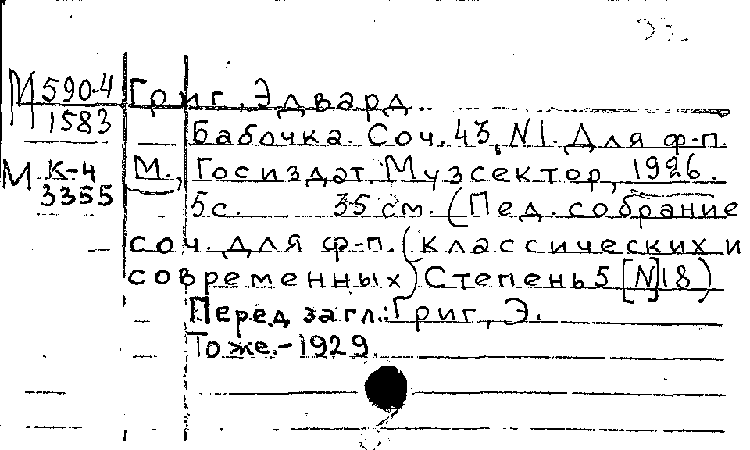 М 590-4 Григ, Эдвард.
1583 Бабочка. Соч. 43, N1. Для ф-п.
М К-4 М., Госиздат. Музсектор, 1926.
3355 5с. 35 см. (Пед. собрание
соч. для ф-п. (классических и
современных) Степень 5 [N]18)
Перед загл.: Григ, Э.
То же.-1929.